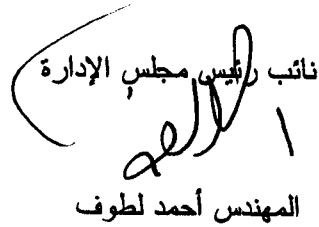 نائب رئيس مجلس الإدارة
المهندس أحمد لطوف